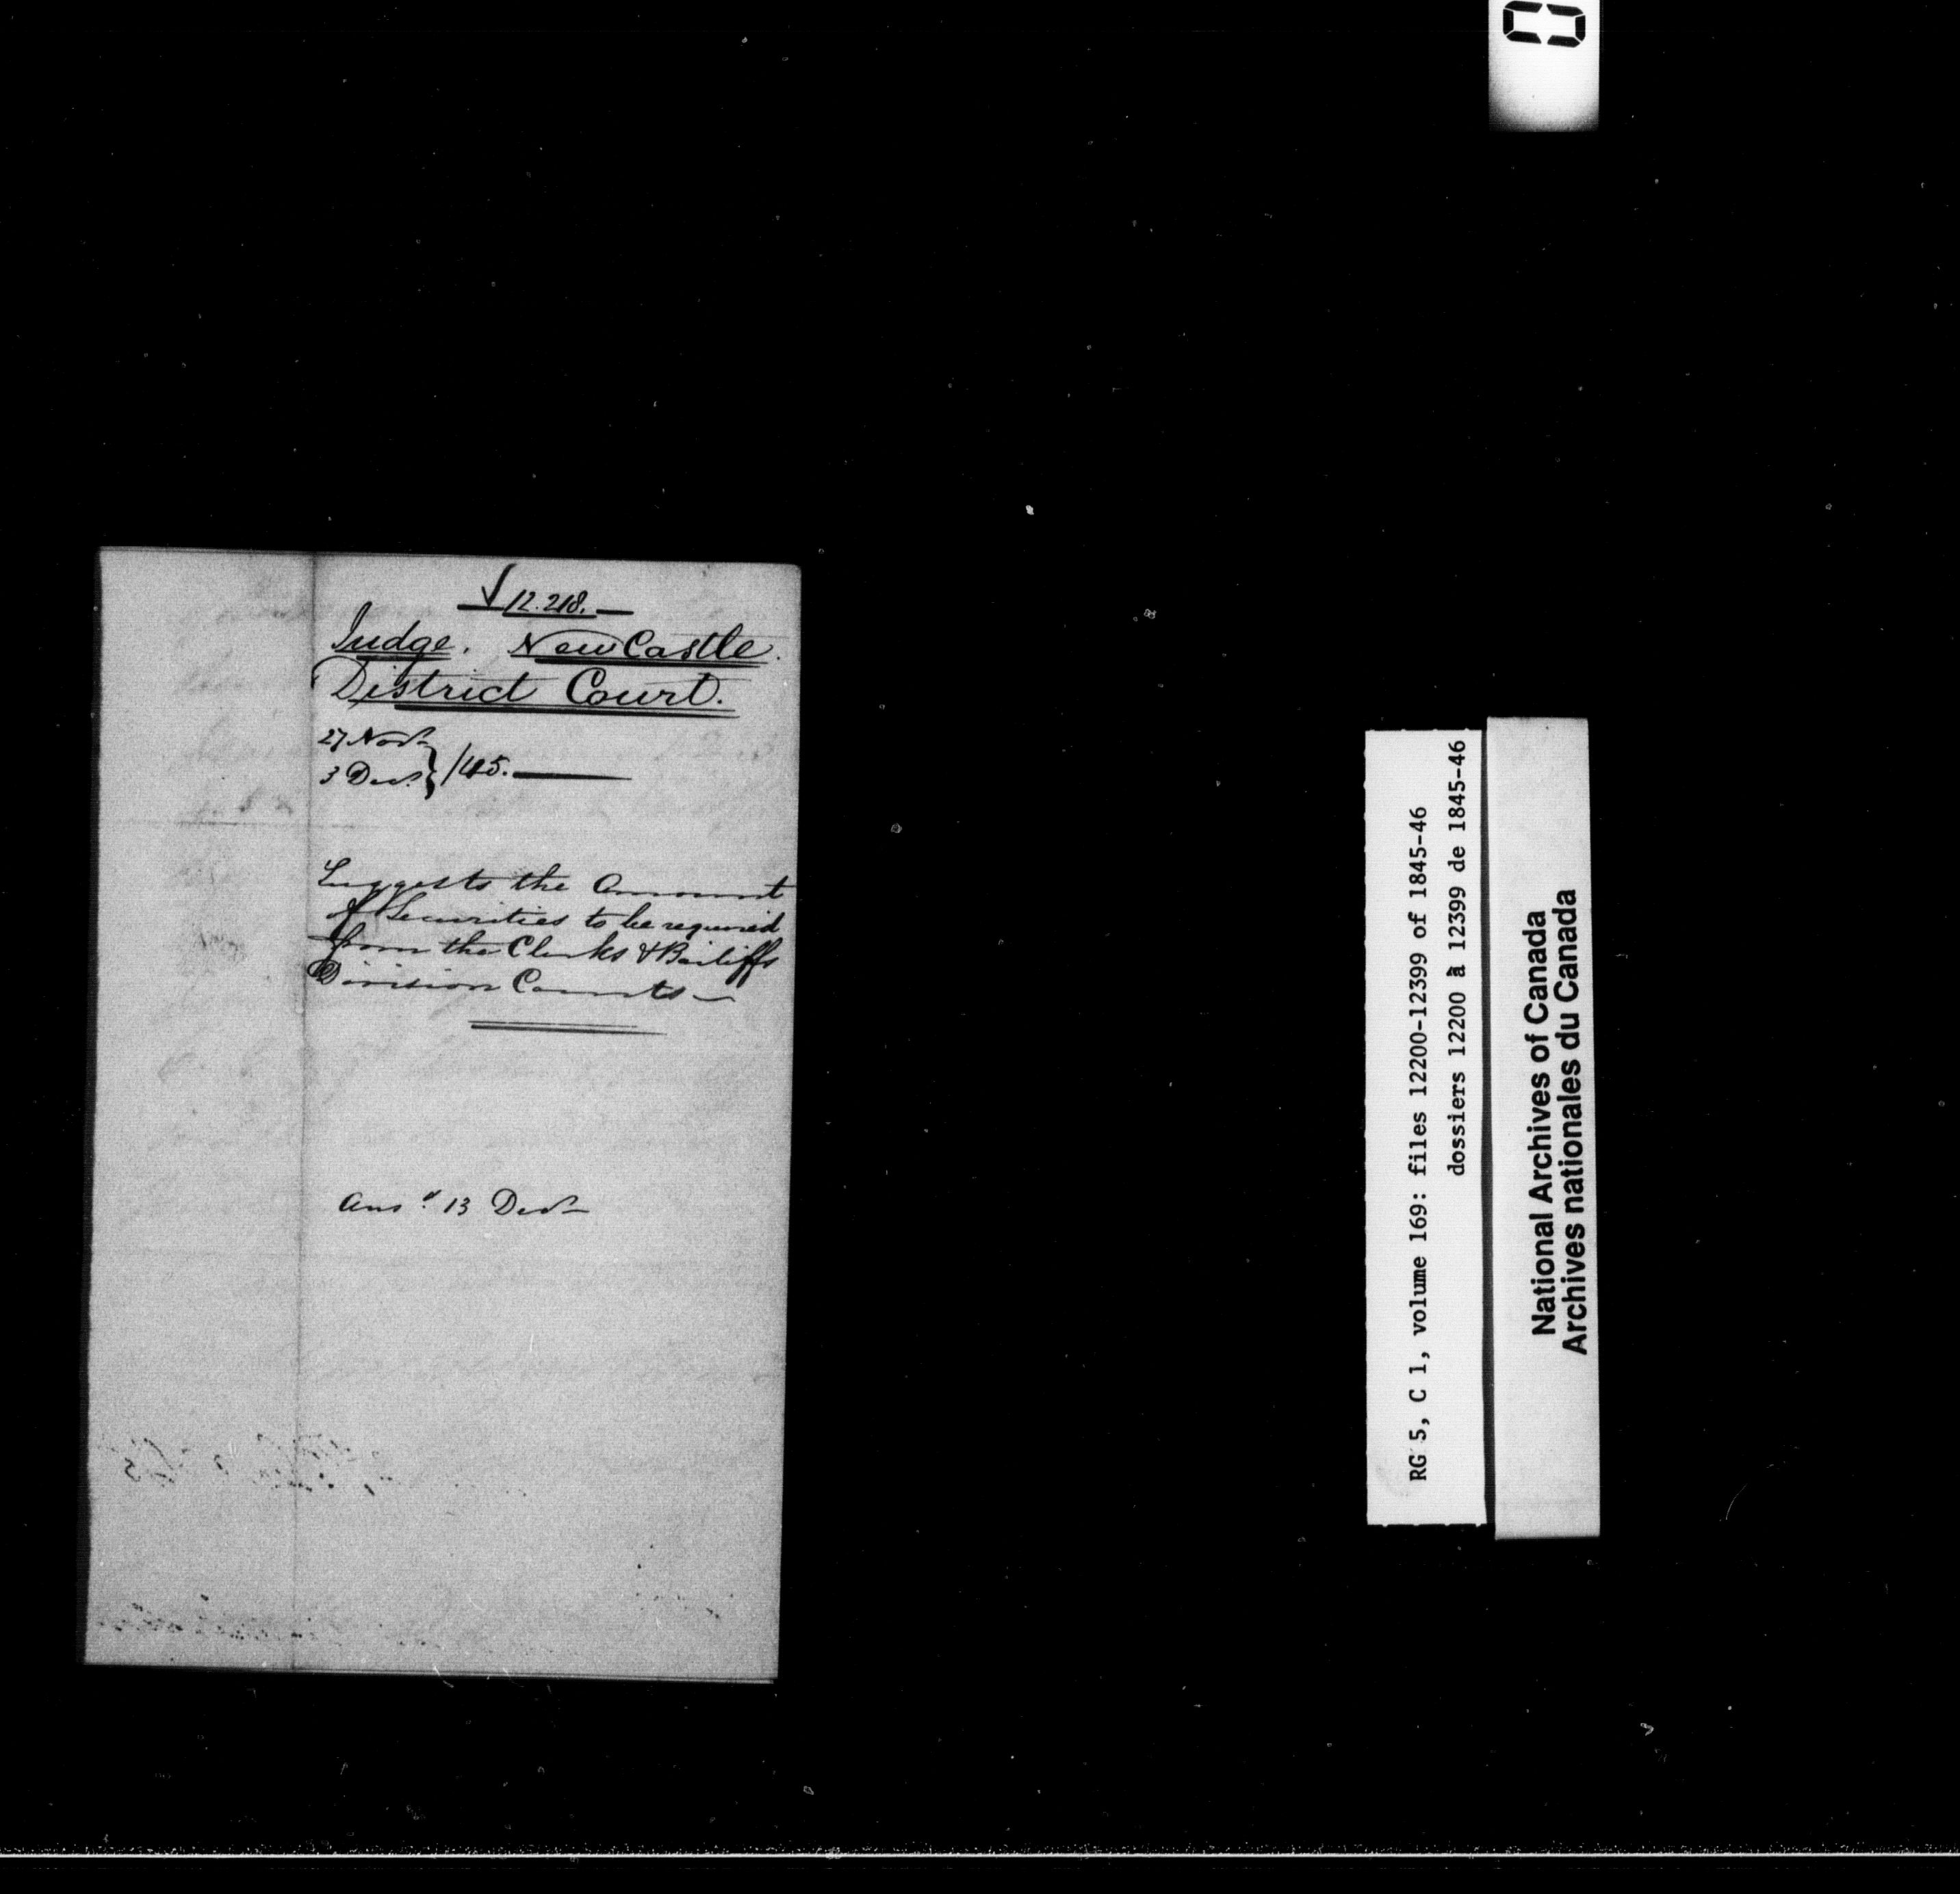 12.218.
Judge. NewCastle
District Court.
27 Novr
3 Decr } /45.
Suggests the Amount
of Securities to be required
from the Clerks & Bailiffs
Division Courts
Ansd 13 Decr
RG 5, C 1, volume 169: files 12200-12399 of 1845-46
dossiers 12200 à 12399 de 1845-46
National Archives of Canada
Archives nationales du Canada